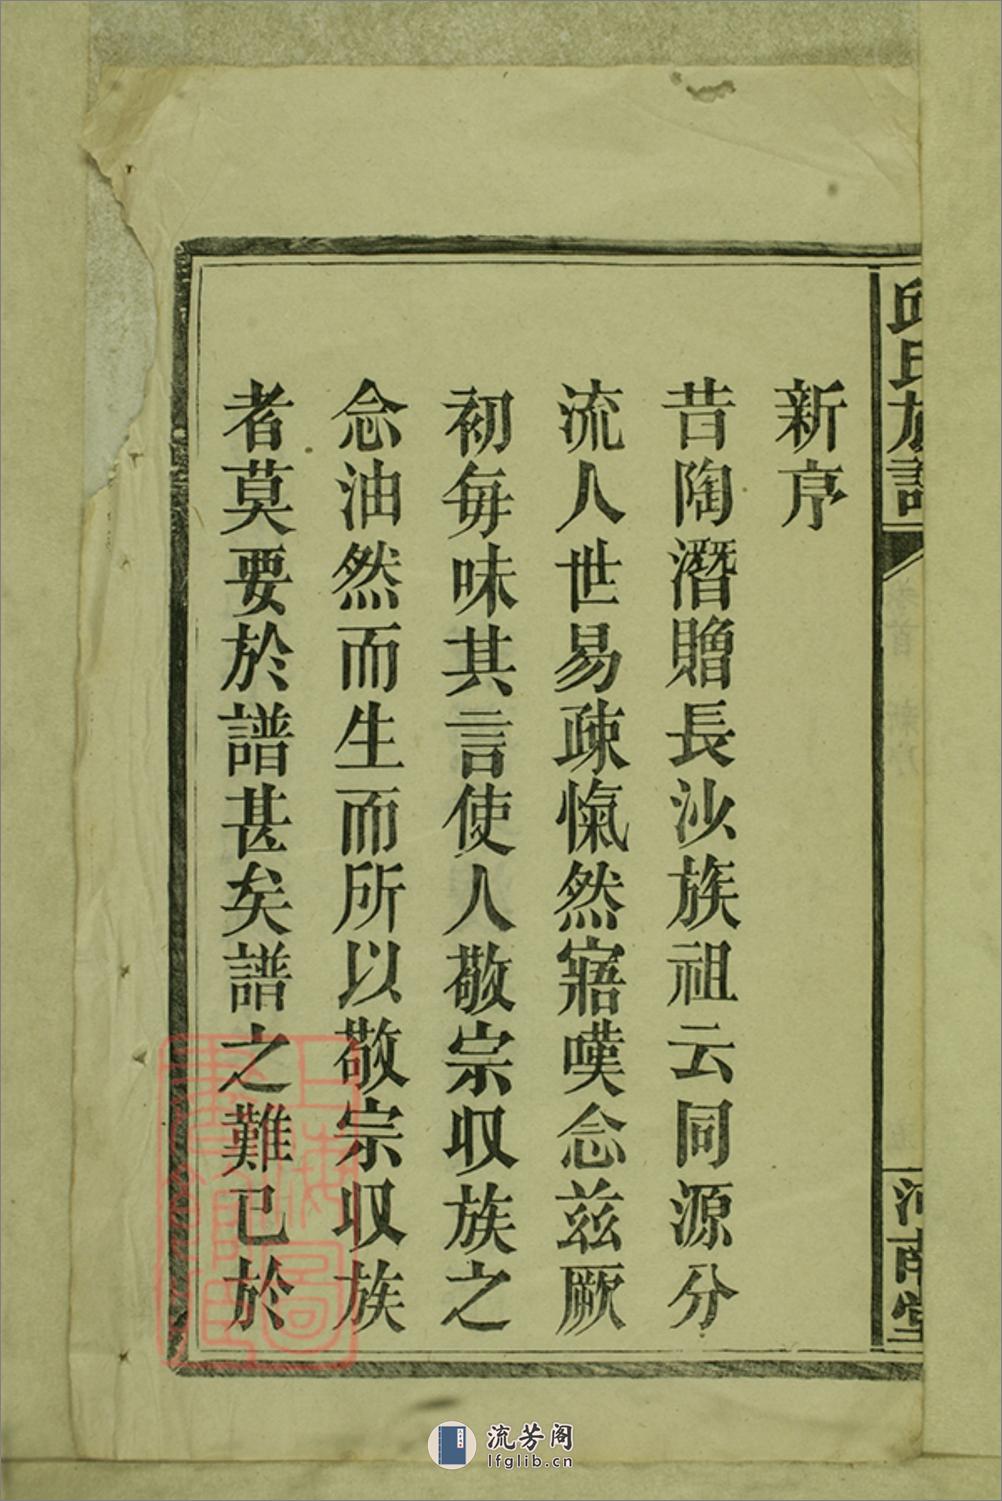 邱氏族譜
河南堂
新序
昔陶潛贈長沙族祖云同源分
流人世易疎愾然寤嘆念茲厥
初每味其言使人敬宗収族之
念油然而生而所以敬宗収族
者莫要於譜甚矣譜之難已於
上海圖書館藏
流芳阁
lfglib.cn